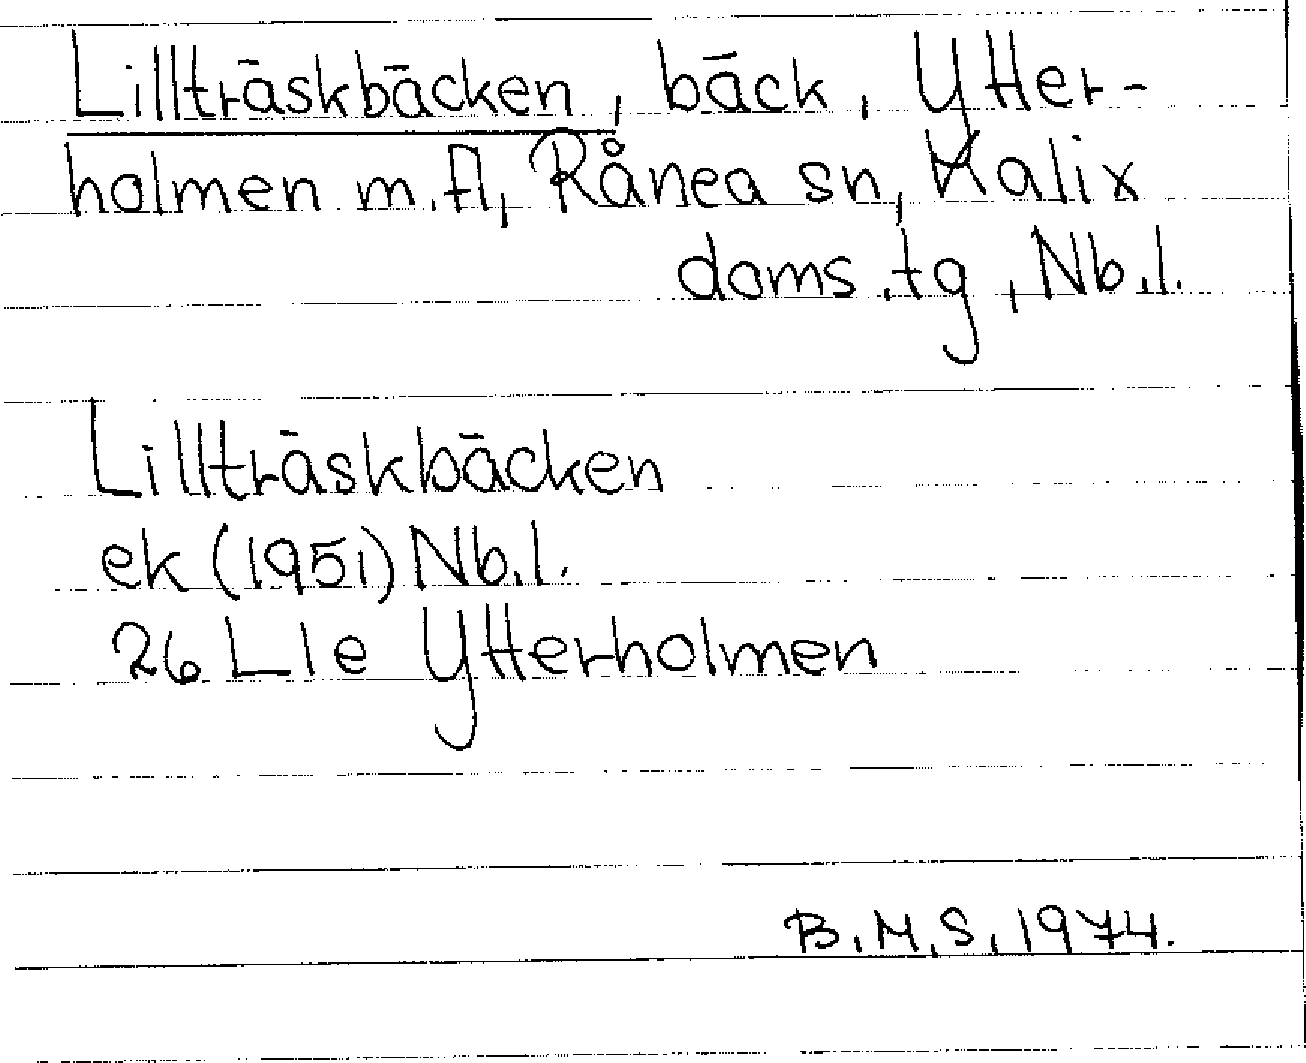 Lillträskbäcken, bäck, Ytter-
holmen m.fl, Rånea sn, Kalix
doms.tg, Nb.l.
Lillträskbäcken
ek (1951) Nb.l.
26 L1e Ytterholmen
B.M.S. 1974.